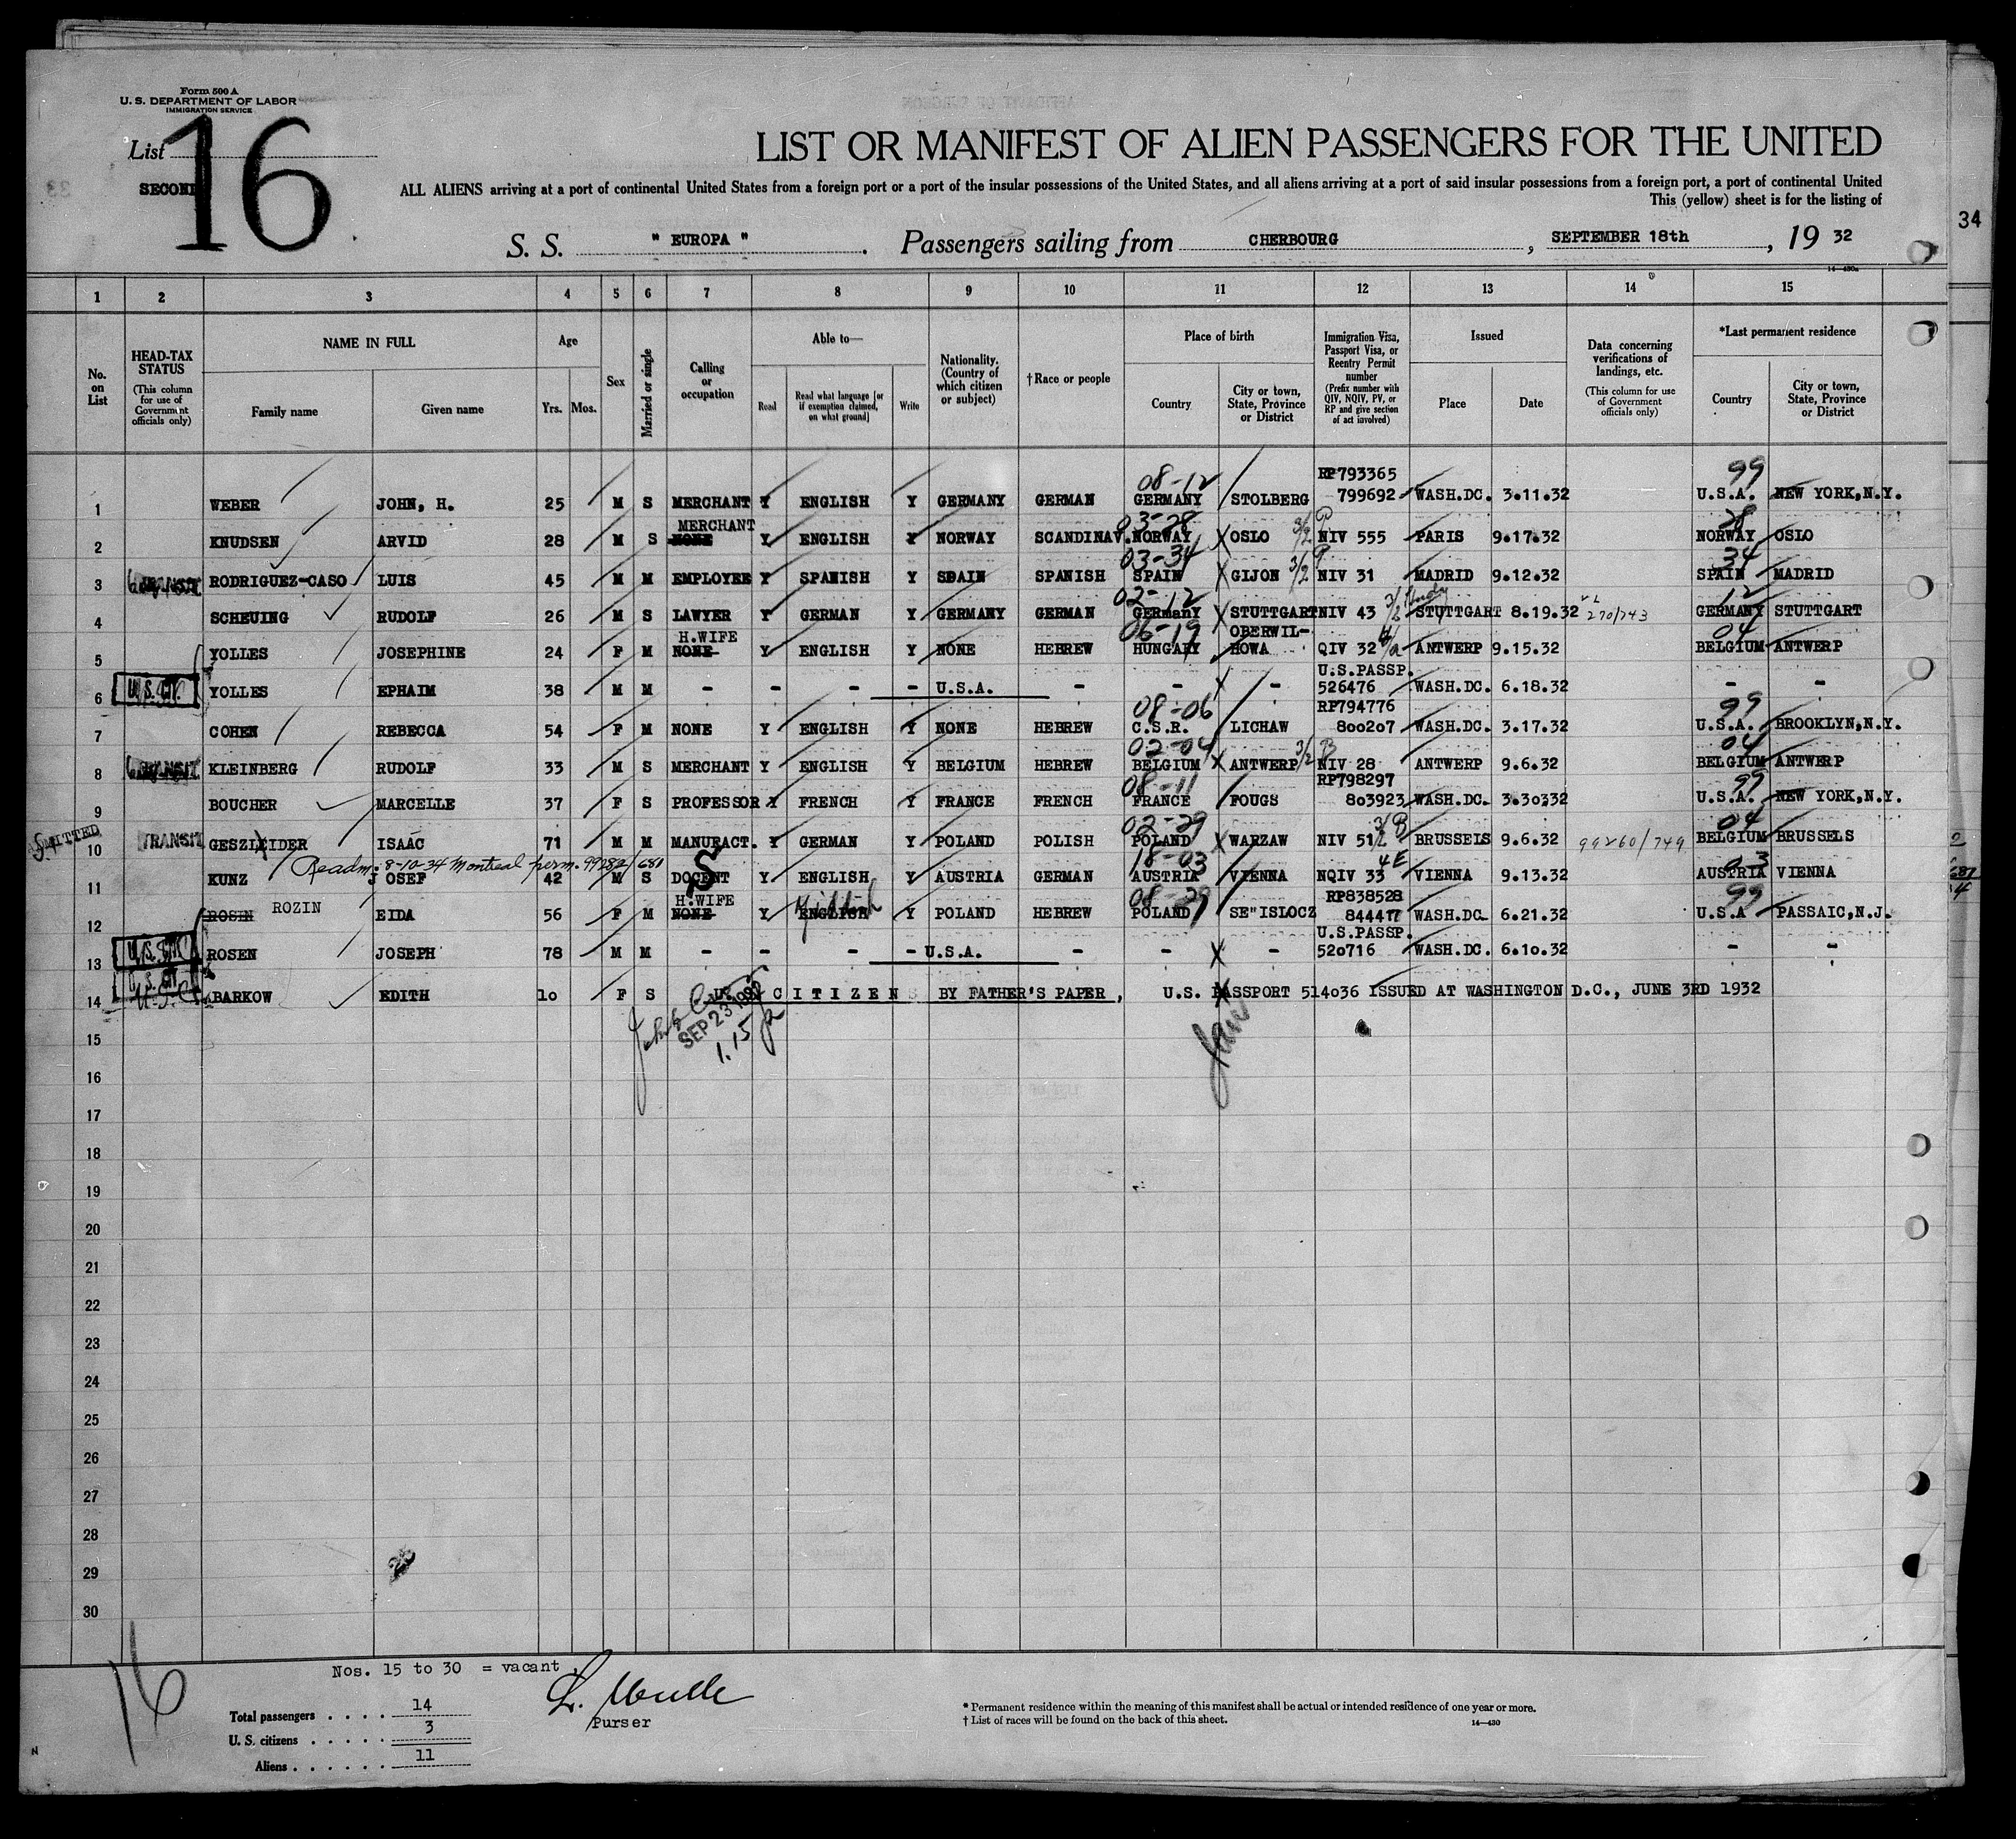 Form 500 A
U. S. DEPARTMENT OF LABOR
IMMIGRATION SERVICE
List 16
SECOND
LIST OR MANIFEST OF ALIEN PASSENGERS FOR THE UNITED
ALL ALIENS arriving at a port of continental United States from a foreign port or a port of the insular possessions of the United States, and all aliens arriving at a port of said insular possessions from a foreign port, a port of continental United
This (yellow) sheet is for the listing of
34
S. S. " EUROPA ". Passengers sailing from CHERBOURG, SEPTEMBER 18th, 19 32
14—430a
1 2 3 4 5 6 7 8 9 10 11 12 13 14 15
No. on List
HEAD-TAX STATUS (This column for use of Government officials only)
NAME IN FULL Family name Given name
Age Yrs. Mos.
Sex
Married or single
Calling or occupation
Able to— Read Read what language [or if exemption claimed, on what ground] Write
Nationality. (Country of which citizen or subject)
†Race or people
Place of birth Country City or town, State, Province or District
Immigration Visa, Passport Visa, or Reentry Permit number (Prefix number with QIV, NQIV, PV, or RP and give section of act involved)
Issued Place Date
Data concerning verifications of landings, etc. (This column for use of Government officials only)
*Last permanent residence Country City or town, State, Province or District
08-12 RP793365 99
1 WEBER JOHN, H. 25 M S MERCHANT Y ENGLISH Y GERMANY GERMAN GERMANY STOLBERG 799692 WASH.DC. 3.11.32 U.S.A. NEW YORK,N.Y.
MERCHANT 03-28 28
2 KNUDSEN ARVID 28 M S NONE Y ENGLISH Y NORWAY SCANDINAV. NORWAY OSLO 3/2 P NIV 555 PARIS 9.17.32 NORWAY OSLO
03-34 34
3 TRANSIT RODRIGUEZ-CASO LUIS 45 M M EMPLOYEE Y SPANISH Y SPAIN SPANISH SPAIN GIJON 3/2 P NIV 31 MADRID 9.12.32 SPAIN MADRID
02-12 12
4 SCHEUING RUDOLF 26 M S LAWYER Y GERMAN Y GERMANY GERMAN GERmanY STUTTGART NIV 43 3/2 STUTTGART 8.19.32 270/243 GERMANY STUTTGART
H.WIFE 06-19 OBERWIL- 04
5 YOLLES JOSEPHINE 24 F M NONE Y ENGLISH Y NONE HEBREW HUNGARY HOWA QIV 32 4/a ANTWERP 9.15.32 BELGIUM ANTWERP
U.S.PASSP.
6 U.S. CIT. YOLLES EPHAIM 38 M M - - - - U.S.A. - - - 526476 WASH.DC. 6.18.32 - -
08-06 RP794776 99
7 COHEN REBECCA 54 F M NONE Y ENGLISH Y NONE HEBREW C.S.R. LICHAW 800207 WASH.DC. 3.17.32 U.S.A. BROOKLYN,N.Y.
02-04 04
8 TRANSIT KLEINBERG RUDOLF 33 M S MERCHANT Y ENGLISH Y BELGIUM HEBREW BELGIUM ANTWERP 3/2 B NIV 28 ANTWERP 9.6.32 BELGIUM ANTWERP
08-11 RP798297 99
9 BOUCHER MARCELLE 37 F S PROFESSOR Y FRENCH Y FRANCE FRENCH FRANCE FOUGS 803923 WASH.DC. 3.30332 U.S.A. NEW YORK,N.Y.
02-29 04
10 TRANSIT GESZLEIDER ISAAC 71 M M MANUFACT. Y GERMAN Y POLAND POLISH POLAND WARZAW NIV 51 3/2 B BRUSSELS 9.6.32 99260/749 BELGIUM BRUSSELS
Readm: 8-10-34 Montreal perm. 99282/681
S 18-03 4E 03
11 KUNZ JOSEF 42 M S DOCENT Y ENGLISH Y AUSTRIA GERMAN AUSTRIA VIENNA NQIV 33 VIENNA 9.13.32 AUSTRIA VIENNA
H.WIFE Yiddish 08-29 RP838528 99
12 ROSIN ROZIN EIDA 56 F M NONE Y ENGLISH Y POLAND HEBREW POLAND SE"ISLOCZ 844417 WASH.DC 6.21.32 U.S.A PASSAIC,N.J.
U.S.PASSP.
13 U.S. CIT. ROSEN JOSEPH 78 M M - - - - U.S.A. - - - 520716 WASH.DC. 6.10.32 - -
14 U.S. CIT. U.S.C. BARKOW EDITH 10 F S U.S. CITIZEN BY FATHER'S PAPER, U.S. PASSPORT 514036 ISSUED AT WASHINGTON D.C., JUNE 3RD 1932
SEP 23 1932
1.15
15
16
17
18
19
20
21
22
23
24
25
26
27
28
29
30
Nos. 15 to 30 = vacant
16
Total passengers . . . . 14
U. S. citizens . . . . . 3
Aliens . . . . . . 11
Purser
* Permanent residence within the meaning of this manifest shall be actual or intended residence of one year or more.
† List of races will be found on the back of this sheet.
14—430